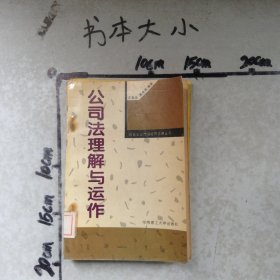 书本大小
10cm 15cm 20cm
公司法理解与运作
10cm
15cm
20cm
华南理工大学出版社